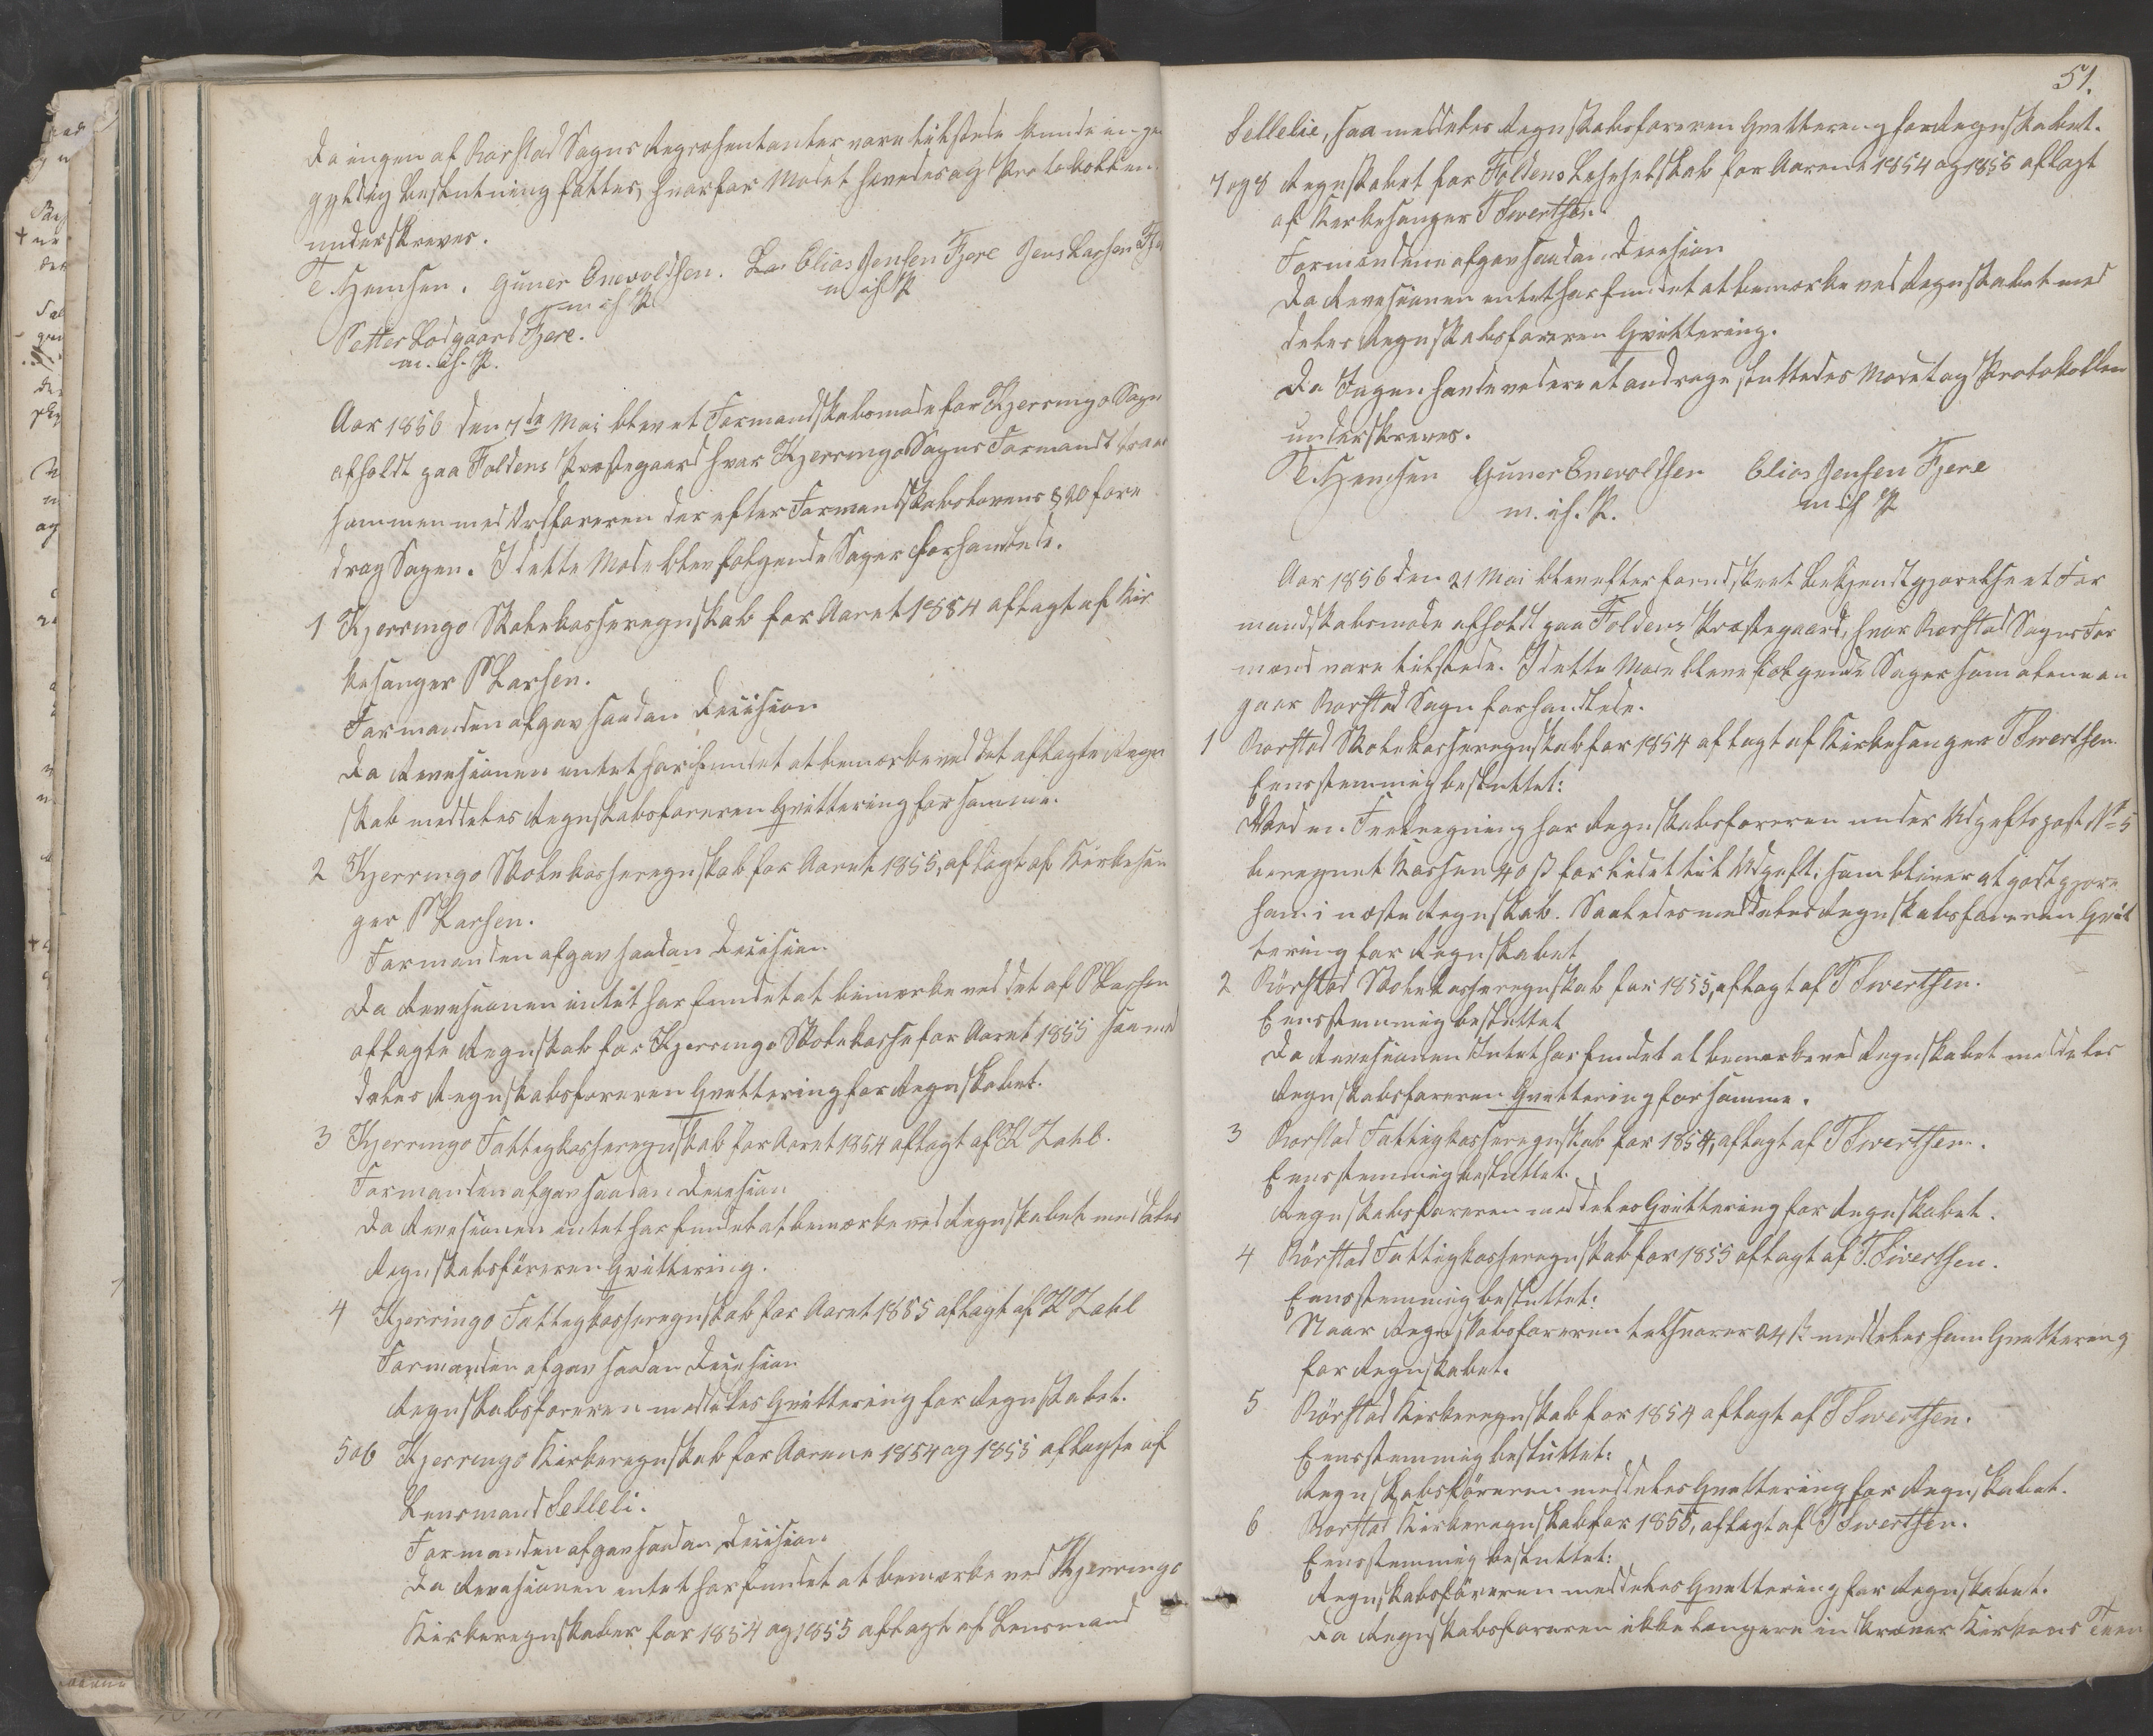 Da ingen af Rørstad Sogns Repræsentanter vare tilstede kunde ingen
gyldig Beslutning fattes, hvorfor Mødet hævedes og Protokollen
underskreves.
T Hemsen. Guner Enevoldsen. Elias Jensen Fjere Jens Larsen
m i h P m i h P
Petter Lodgaard Fjere.
m. i h. P.
Aar 1856 den 7de Mai blev et Formandskabsmøde for Kjerringø Sogn
afholdt paa Foldens Præstegaard hvor Kjerringø Sogns Formand traadte
sammen med Ordføreren der efter Formandskabslovens § 20 fore
drog Sagen. I dette Møde blev følgende Sager forhandlede.
1 Kjerringø Skolekasseregnskab for Aaret 1854 aflagt af Kir
kesanger P Larsen.
Formanden afgav saadan Decision
Da Revisionen intet har fundet at bemærke ved det aflagte Regn
skab meddeles Regnskabsføreren Qvittering for samme.
2 Kjerringø Skolekasseregnskab for Aaret 1855, aflagt af Kirkesan
ger P Larsen.
Formanden afgav saadan Decision
Da Revisionen intet har fundet at bemærke ved det af P Larsen
aflagte Regnskab for Kjerringø Skolekasse for Aaret 1855 saa med
deles Regnskabsføreren Qvittering for Regnskabet.
3 Kjerringø Fattigkasseregnskab for Aaret 1854 aflagt af K Zahl.
Formanden afgav saadan Decision
Da Revisionen intet har fundet at bemærke ved Regnskabet meddeles
Regnskabsføreren Qvittering.
4 Kjerringø Fattigkasseregnskab for Aaret 1855 aflagt af K Zahl
Formanden afgav saadan Decision
Regnskabsføreren meddeles Qvittering for Regnskabet.
5 o 6 Kjerringø Kirkeregnskab for Aarene 1854 og 1855 aflagte af
Lensmand Selleli.
Formanden afgav saadan Decision
Da Revisionen intet har fundet at bemærke ved Kjerringø
Kirkeregnskaber for 1854 og 1855 aflagt af Lensmand
51.
Sellelie, saa meddeles Regnskabsføreren Qvittering for Regnskabet.
7 og 8 Regnskabet for Foldens for Aarene 1854 og 1855 aflagt
af Kirkesanger T Sivertsen.
Formændene afgav saadan Decision
Da Revisionen intet har fundet at bemærke ved Regnskabet med
deles Regnskabsføreren Qvittering.
Da Ingen havde videre at andrage sluttedes Mødet og Protokollen
underskreves.
T Hemsen Guner Enevoldsen Elias Jensen Fjere
m. i h. P. m i h P
Aar 1856 den 21 Mai blev efter forudskeet Bekjendtgjørelse et For
mandskabsmøde afholdt paa Foldens Præstegaard, hvor Rørstad Sogns For
mænd vare tilstede. I dette Møde bleve følgende Sager som alene an
gaar Rørstad Sogn forhandlede.
1 Rørstad Skolekasseregnskab for 1854 aflagt af Kirkesanger T Sivertsen.
Eensstemmig besluttet:
Ved en Feilregning har Regnskabsføreren under Udgiftspost No 5
beregnet Kassen 40 ß for lidet til Udgift, som bliver at godtgjøre
ham i næste Regnskab. Saaledes meddeles Regnskabsføreren Qvit
tering for Regnskabet
2 Rörstad Skolekasseregnskab for 1855, aflagt af T Sivertsen.
Eensstemmig besluttet
Da Revisionen Intet har fundet at bemærke ved Regnskabet meddeles
Regnskabsføreren Qvittering for samme.
3 Rørstad Fattigkasseregnskab for 1854, aflagt af T Sivertsen.
Eensstemmig besluttet.
Regnskabsføreren meddeles Qvittering for Regnskabet.
4 Rörstad Fattigkasseregnskab for 1855 aflagt af T. Sivertsen.
Eensstemmig besluttet:
Naar Regnskabsføreren tilsvarer 24 ß meddeles ham Qvittering
for Regnskabet.
5 Rörstad Kirkeregnskab for 1854 aflagt af T Sivertsen.
Eensstemmig besluttet:
Regnskabsføreren meddeles Qvittering for Regnskabet.
6 Rørstad Kirkeregnskab for 1855, aflagt af T Sivertsen.
Eensstemmig besluttet:
Regnskabsføreren meddeles Qvittering for Regnskabet.
Da Regnskabsføreren ikke længere inkræver Kirkens